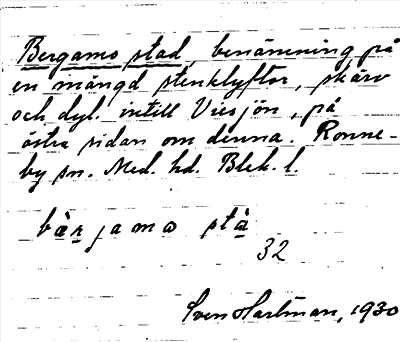 Bergamo stad, benämning på
en mängd stenklyftor, skärv
och dyl. intill Viesjön, på
östra sidan om denna. Ronne-
by sn. Med. hd. Blek. l.
bärjamo stà
32
Sven Hartman, 1930